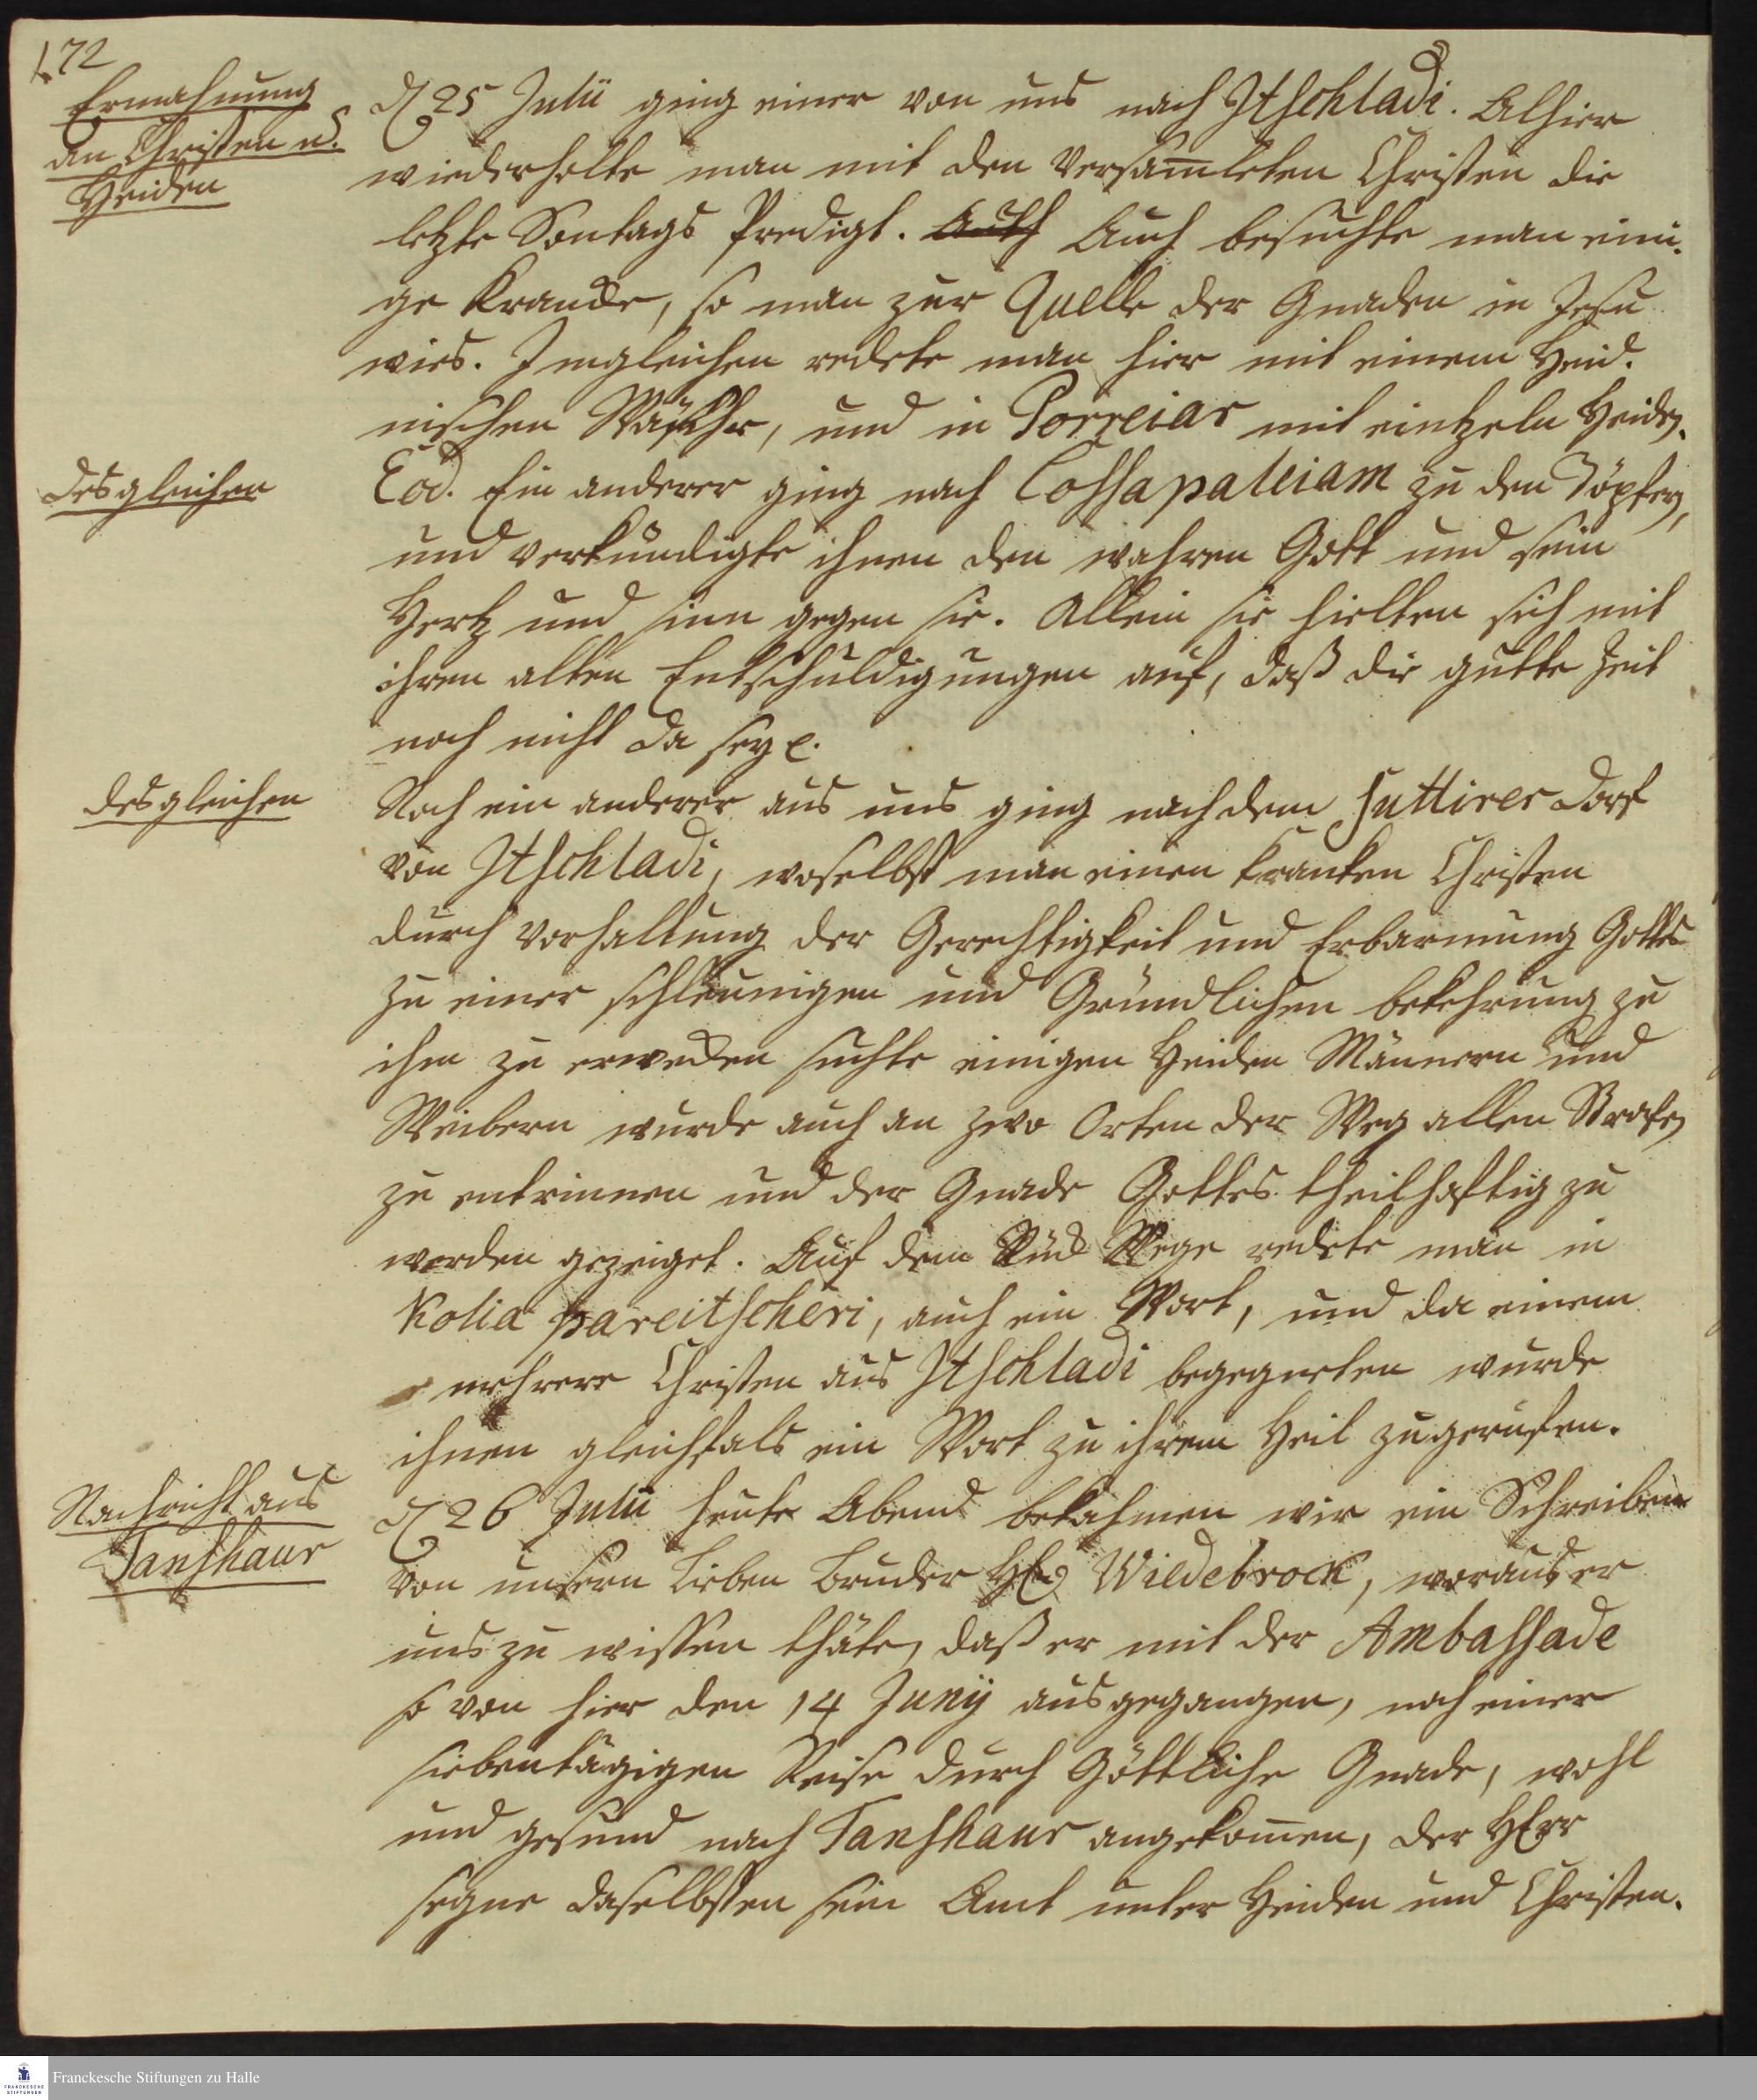 172
Ermahnung
an Christen u.
Heiden
d 25 Julii ging einer von uns nach Itschladi. Alhier
wiederholte man mit den versam̅leten Christen die
letzte Sontags Predigt. Auch Auch besuchte man eini-
ge Krancke, so man zur Quelle der Gnaden in Jesu
wies. Imgleichen redete man hier mit einem Heid-
nischen Wäscher, und in Porreiar mit eintzeln Heiden.
desgleichen
Eod. Ein anderer ging nach Cossapaleiam zu den Töpfern,
und verkündigte ihnen den wahren Gott und sein
Hertz und sinn gegen sie. Allein sie hielten sich mit
ihren alten Entschuldigungen auf, daß die gutte Zeit
noch nicht da sey
desgleichen
Noch ein anderer aus uns ging nach dem Suttirer dorf
von Itschladi, woselbst man einen krancken Christen
durch Vorhaltung der Gerechtigkeit und Erbarmung Gottes
zu einer schleunigen und Gründlichen bekehrung zu
ihm zu erwecken suchte einigen Heiden Männern und
Weibern wurde auch an zwo Orten der Weg allen Strafen
zu entrinnen und der Gnade Gottes theilhaftig zu
werden gezeiget. Auf dem Rück Wege redete man in
Kolia pareitscheri, auch ein Wort, und da einem
mehrere Christen aus Itschladi begegneten wurde
ihnen gleichfals ein Wort zu ihrem Heil zugerufen.
Nachricht aus
Tanschaur
d 26 Julii heute Abend bekahmen wir ein Schreiben
von unsern lieben Bruder H Wiedebrock, woraus er
uns zu wissen thäte, daß er mit der Ambassade
so von hier den 14 Junij ausgegangen, nach einer
siebentägigen Reise durch Göttliche Gnade, wohl
und gesund nach Tanschaur angekom̅en, der HErr
segne daselbsten sein Amt unter Heiden und Christen.
Franckesche Stiftungen zu Halle